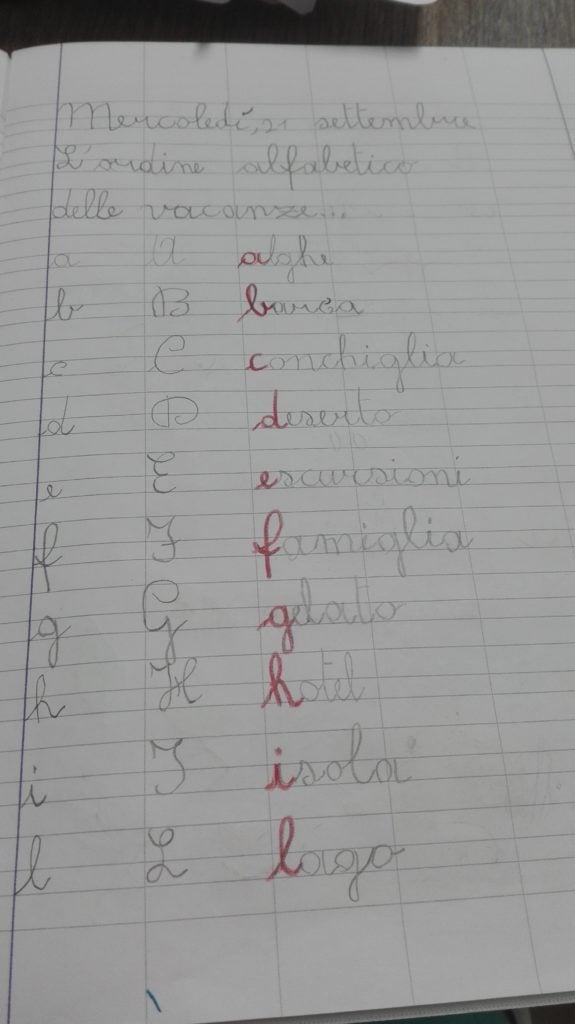 Mercoledì, 21 settembre
L'ordine alfabetico
delle vacanze...
a A alghe
b B barca
c C conchiglia
d D deserto
e E escursioni
f F famiglia
g G gelato
h H hotel
i I isola
l L lago